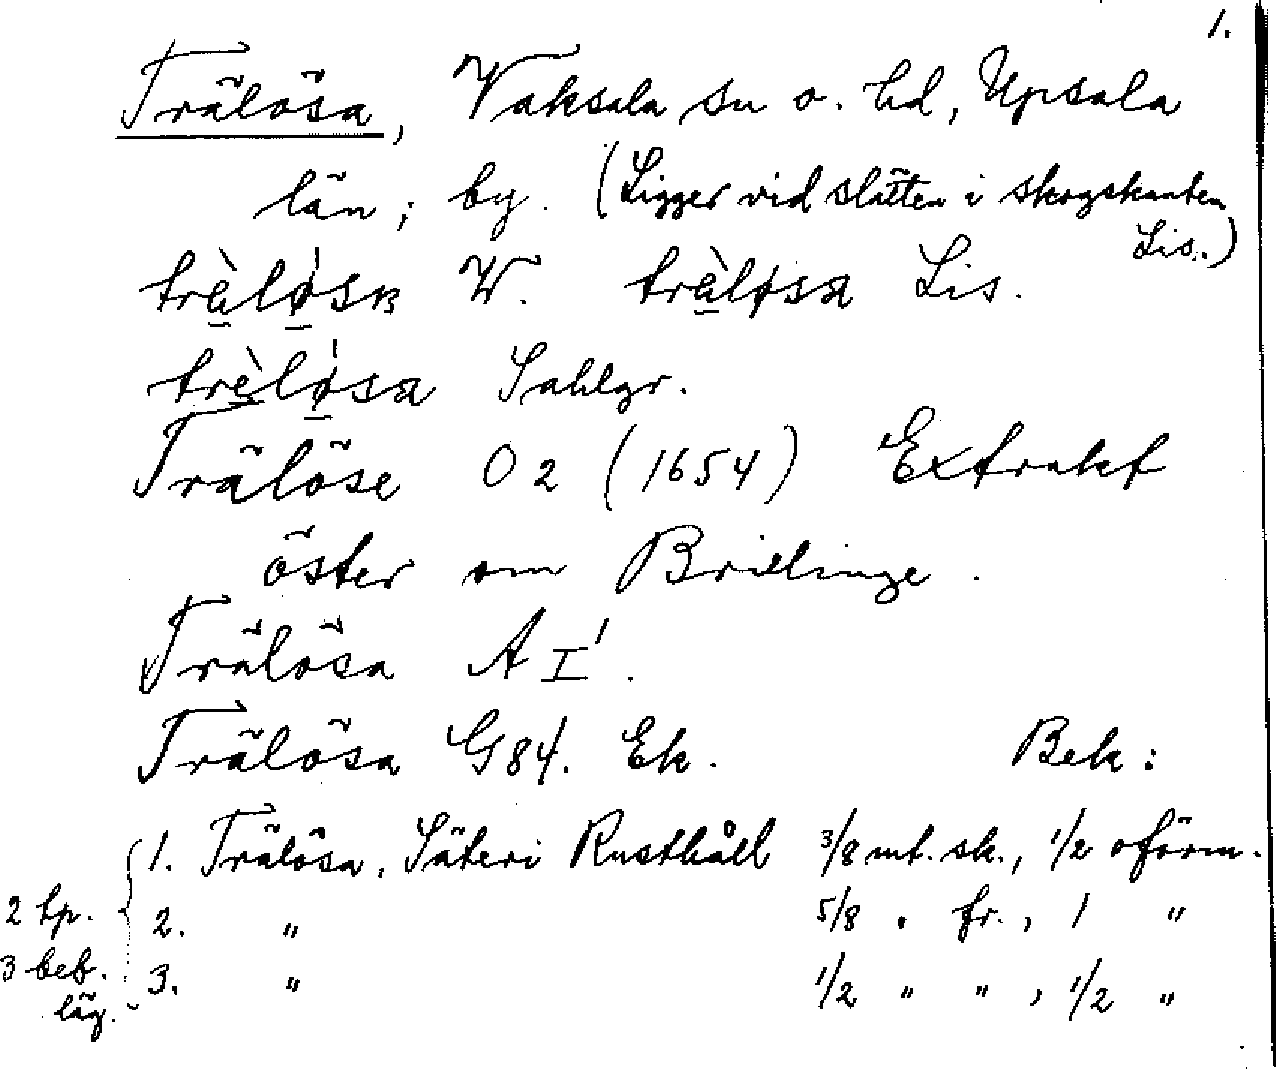 1.
Trälösa, Vaksala sn o. hd, Upsala
län; by. (Ligger vid slätten i skogskanten
Lis.)
trä̀lø̍sa W. trä̀løsa Lis.
trè̱lø̱̍sa Sahlgr.
Trälöse O2 (1654) Extrakt
öster om Brillinge.
Trälösa A I¹.
Trälösa G84. Ek. Bek:
1. Trälösa, Säteri Rusthåll 3/8 mt. sk., 1/2 oförm.
2 hp. 2. " 5/8 " fr., 1 "
3 beb. 3. " 1/2 " ", 1/2 "
läg.